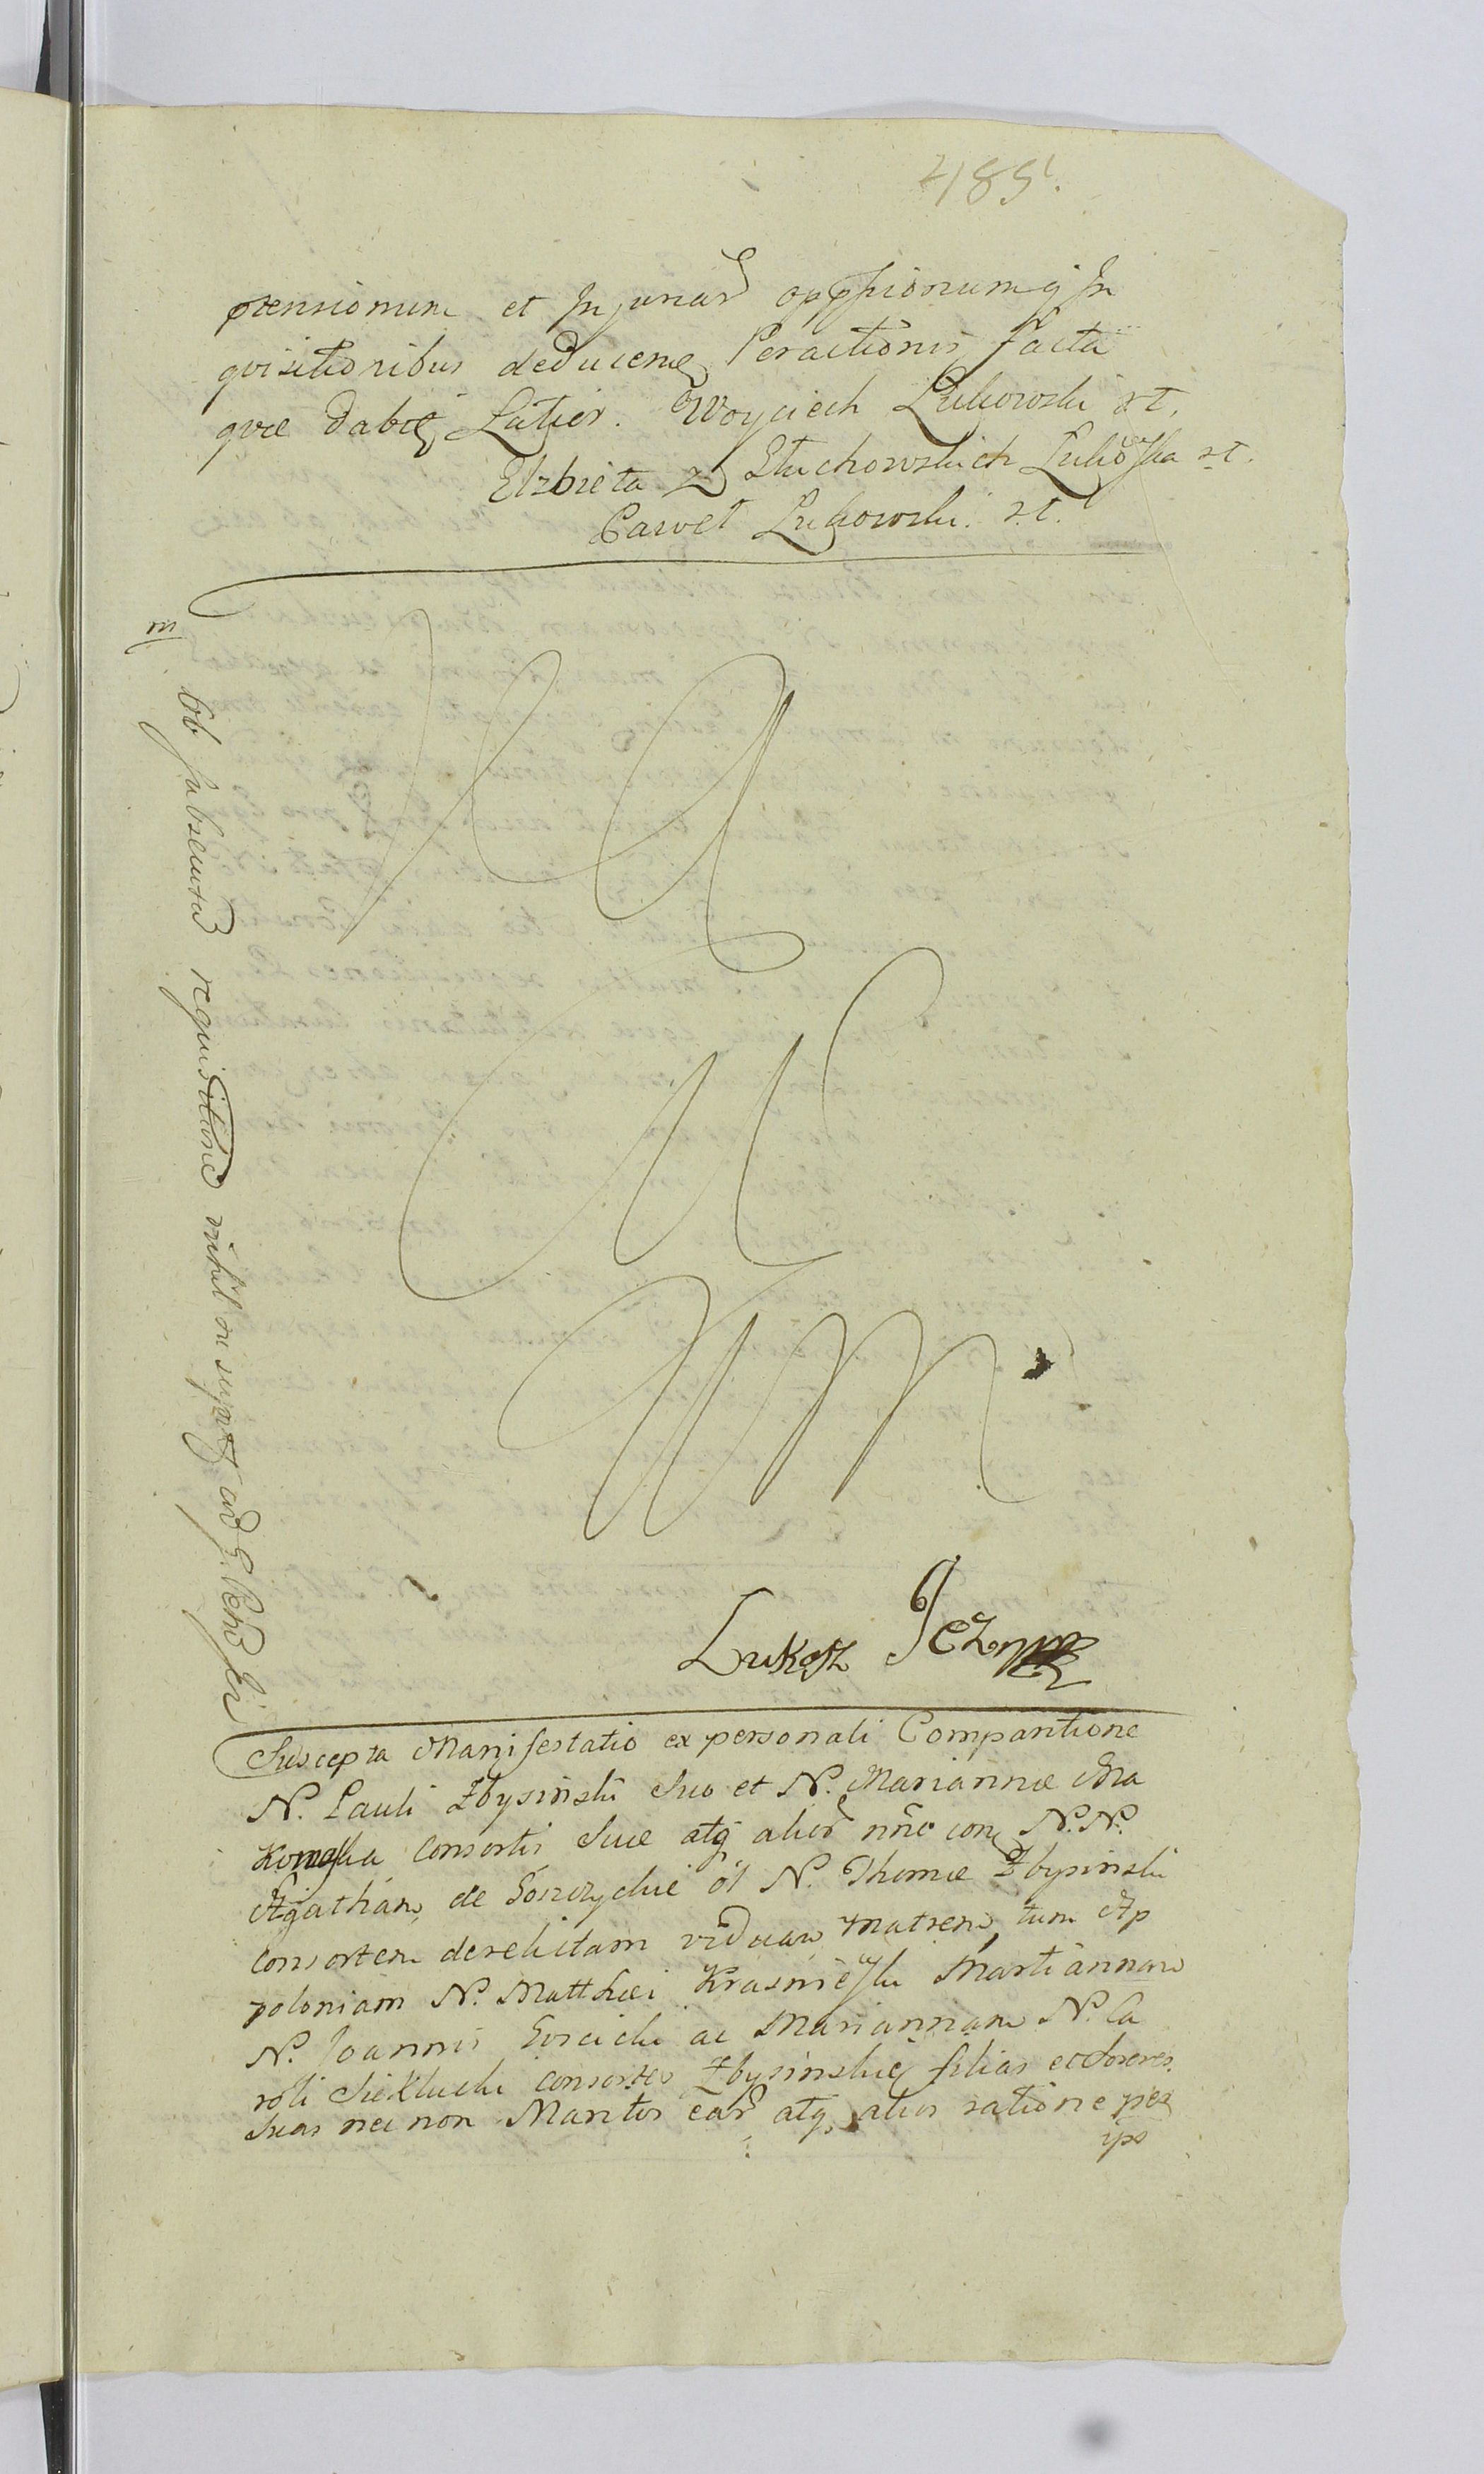 485
ptensionum et Injuriar oppssionumq In
quisitionibus deducend Peractionis facta
quæ dabit Latior. Woyciech Lukowski st.
Elzbieta z Stuchowskich Lukowska st.
Paweł Lukowski. st.
m
Ob subsecuta requisitione nihil
Lukasz
Suscepta Manifestatio ex personali Comparitione
N. Pauli Zbysinski Suo et N. Mariannæ Ma
kowska Consortis Suæ atq alior nnĕ con N.N.
Agatham de Goszczyckie ol N. Thomæ Zbysinski
Consortem derelictam viduam Matrem, tum Ap
poloniam N. Matthæi Krasniewski Mariannam
N. Joannis Goscicki ac Mariannam N. Ca
roli Siekłucki consortes Zbysinskie filias et Sorores
Suas nec non Maritos ear atq alios ratione per
ips